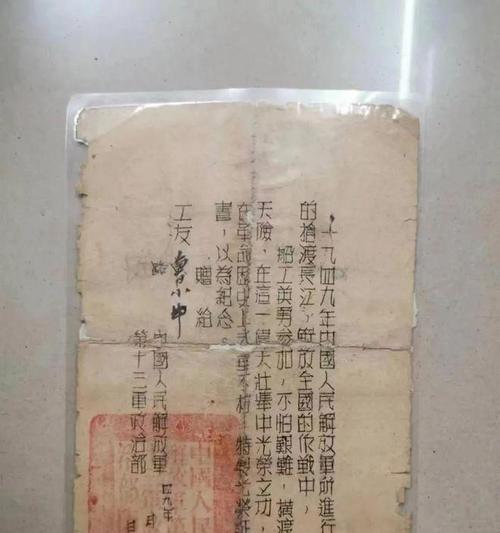 一九四九年中國人民解放軍所進行
的搶渡長江，解放全國的作戰中，
船工英勇參加，不怕艱難，橫渡
天險，在這一偉大壯舉中光榮立功，
在革命歷史上光華不朽！特製光榮証
書，以為紀念。
贈給
工友魯小中
中國人民解放軍
第十三軍政治部
中國人民